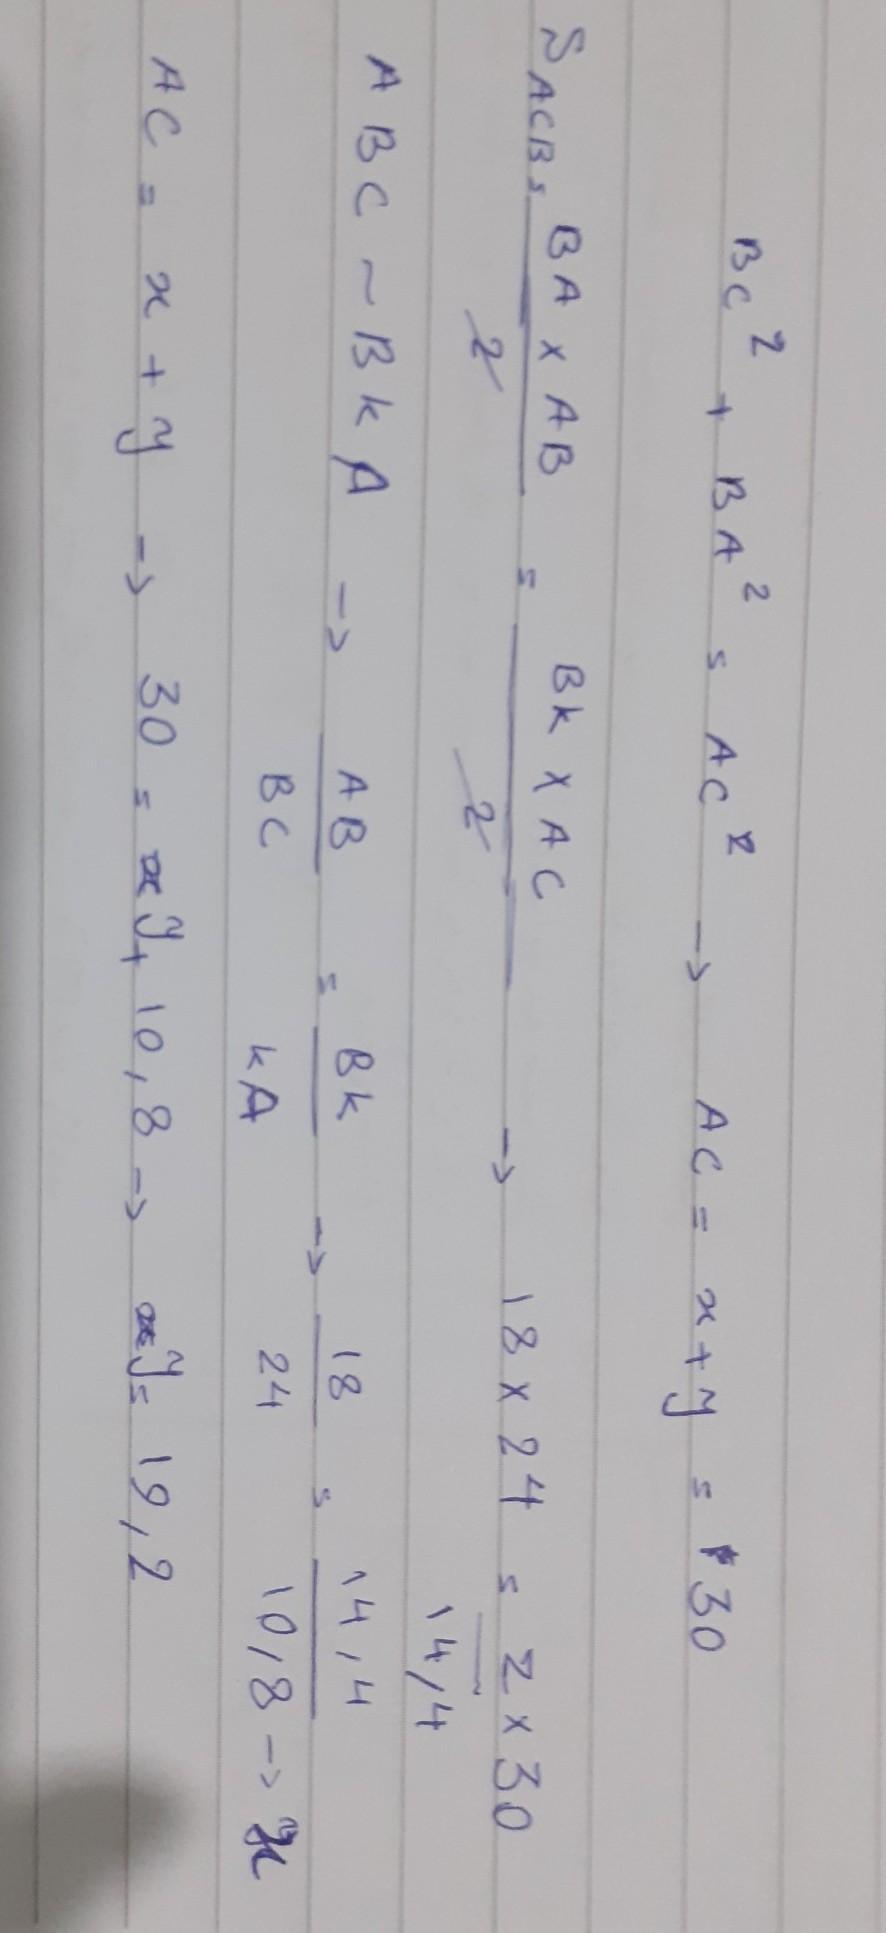 BC² + BA² = AC² → AC = x + y = 30
S ACB = BA × AB / 2 = BK × AC / 2 → 18 × 24 = z × 30
14,4
ABC ~ BKA → AB / BC = BK / KA → 18 / 24 = 14,4 / 10,8 → x
AC = x + y → 30 = y + 10,8 → y = 19,2